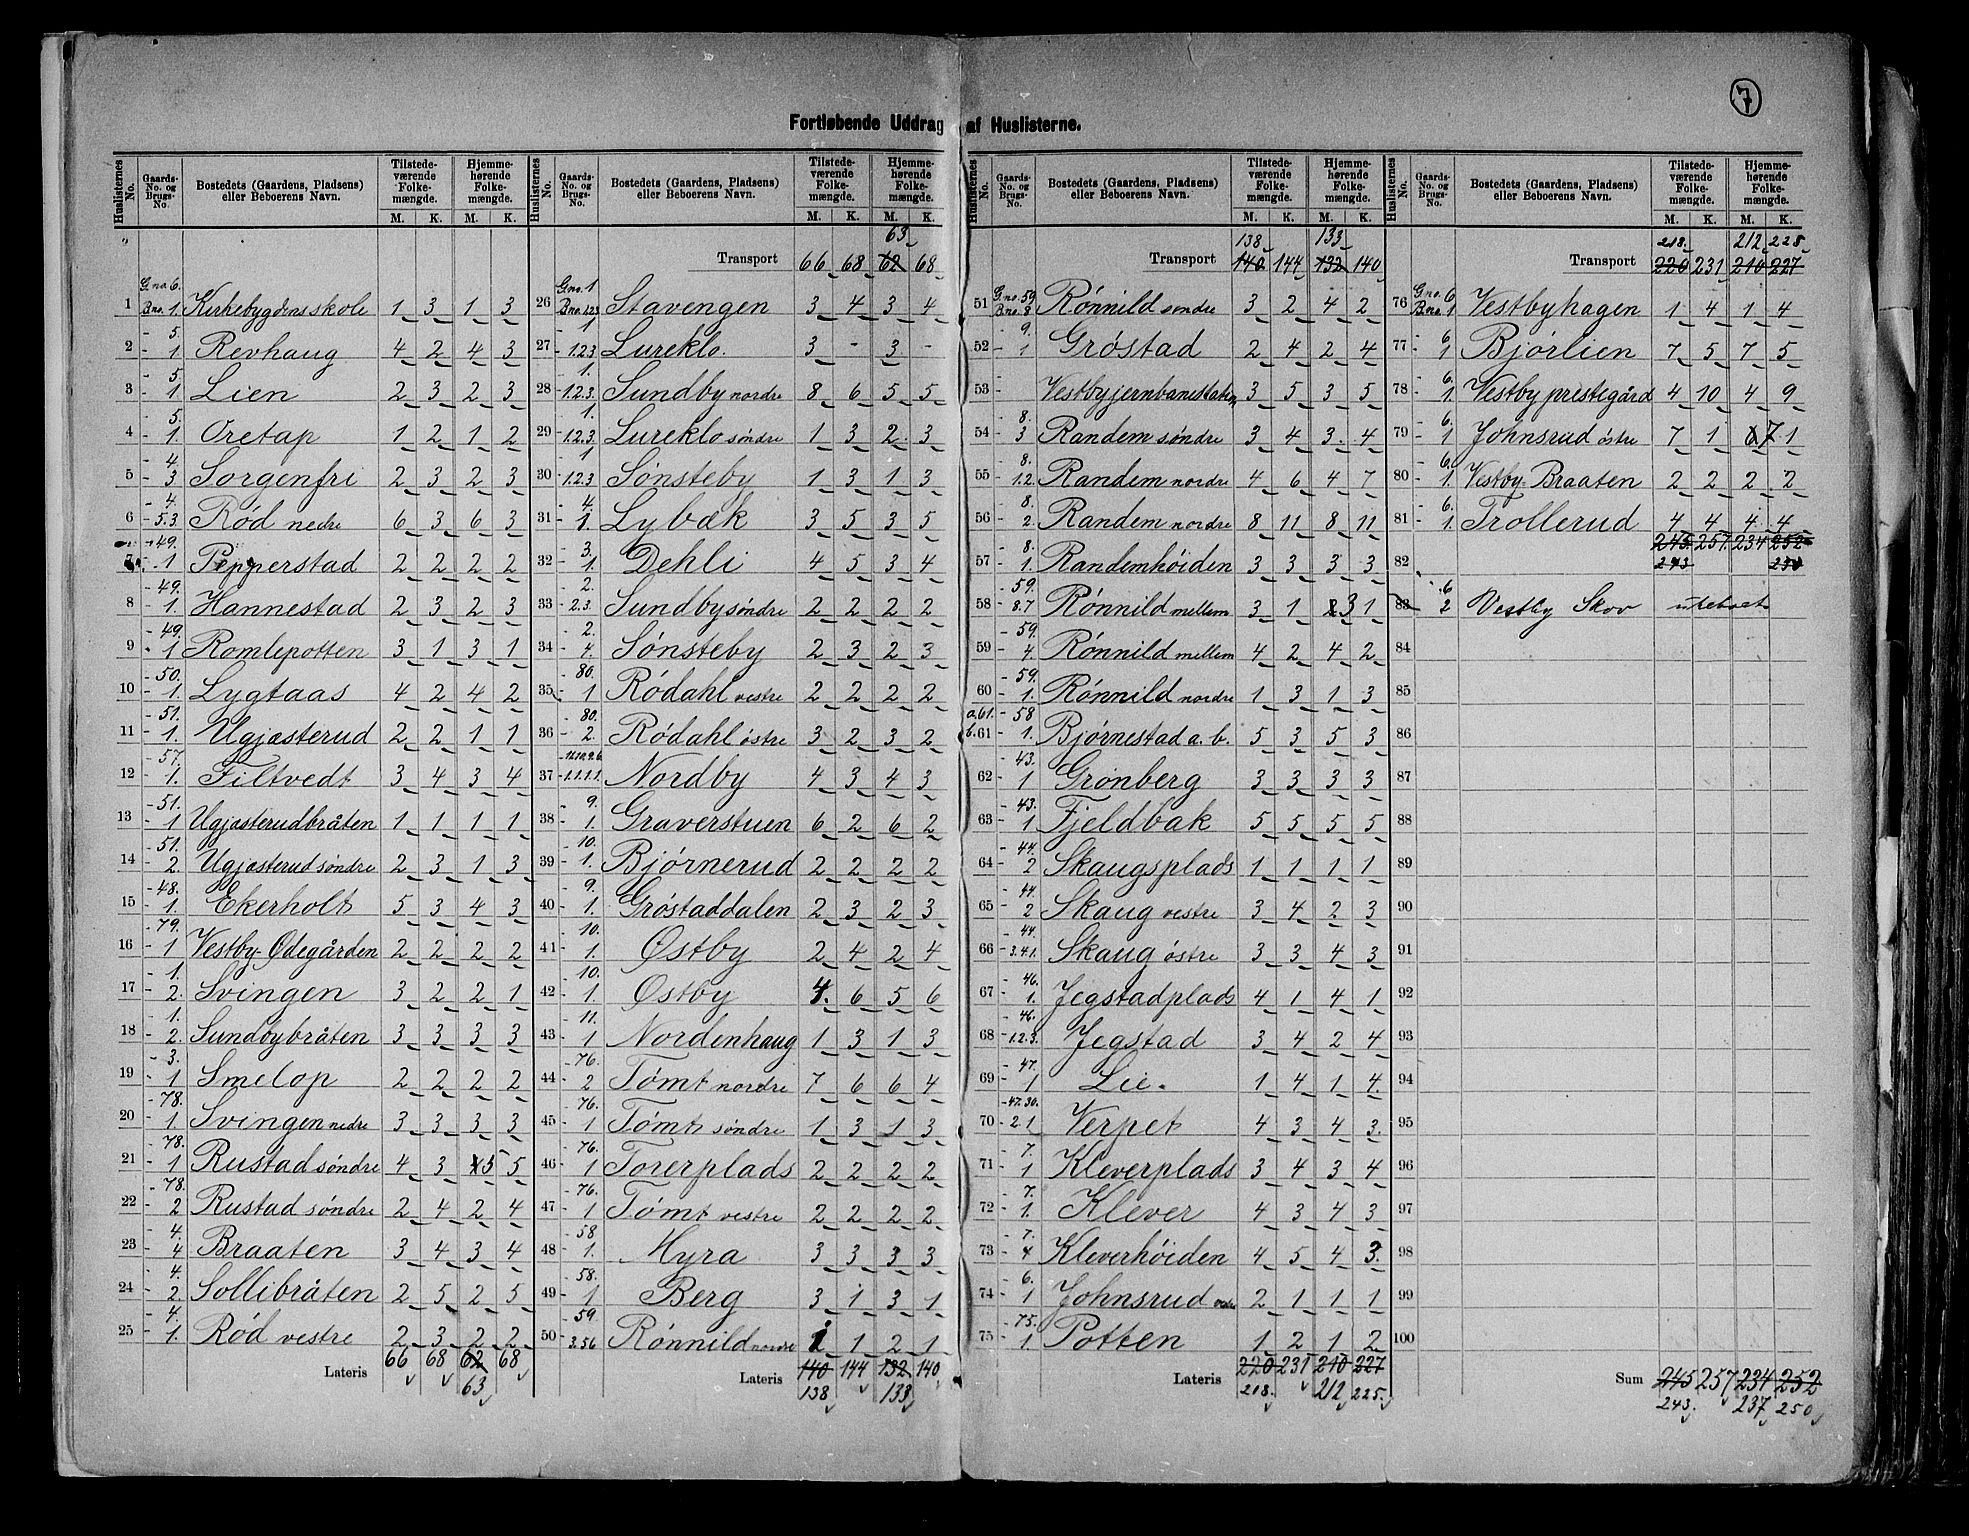 7
Fortløbende Uddrag af Huslisterne.
Huslisternes No. | Gaards-No. og Brugs-No. | Bostedets (Gaardens, Pladsens) eller Beboerens Navn. | Tilstedeværende Folkemængde. M. K. | Hjemmehørende Folkemængde. M. K.
1 G.no. 6. B.no. 1. Kirkebygdens skole 1 3 1 3
2 - 5. - 1 Revhaug 4 2 4 3
3 - 5. - 1 Lien 2 3 2 3
4 - 5. - 1. Oretap 1 2 1 2
5 - 4. - 3 Sorgenfri 2 3 2 3
6 - 4. - 5.3 Rød nedre 6 3 6 3
7 - 49. - 1 Pepperstad 2 2 2 2
8 - 49. - 1. Hannestad 2 3 2 3
9 - 49. - 1 Romlepotten 3 1 3 1
10 - 50. - 1. Lygtaas 4 2 4 2
11 - 51. - 1. Ugjæsterud 2 2 1 1
12 - 57. - 1. Filtvedt 3 4 3 4
13 - 51. - 1 Ugjæsterudbråten 1 1 1 1
14 - 51. - 2. Ugjæsterud søndre 2 3 1 3
15 - 48. - 1. Ekerholt 5 3 4 3
16 - 79. - 1 Vestby-Ødegården 2 2 2 2
17 - 1. - 2. Svingen 3 2 2 1
18 - 1. - 2. Sundbybråten 3 3 3 3
19 - 3. - 1 Smelop 2 2 2 2
20 - 78. - 1. Svingen nedre 3 3 3 3
21 - 78. - 1 Rustad søndre 4 3 5 5
22 - 78. - 2 Rustad søndre 2 4 2 4
23 - 4. - 4 Braaten 3 4 3 4
24 - 4. - 2 Sollibråten 2 5 2 5
25 - 4. - 1 Rød vestre 2 3 2 2
Lateris 66 68 62 68
63
63
Transport 66 68 62 68
26 G.no. 1 B.no. 1.2.3 Stavengen 3 4 3 4
27 - 1 - 1.2.3 Lureklo. 3 - 3 -
28 - 1. - 1.2.3. Sundby nordre 8 6 5 5
29 - 1. - 1.2.3. Lureklo søndre 1 3 2 3
30 - 1 - 1.2.3 Sønsteby 1 3 1 3
31 - 4. - 1. Lybæk 3 5 3 5
32 - 3. - 1. Dehli 4 5 3 4
33 - 2. - 2.3. Sundby søndre 2 2 2 2
34 - 2. - 4. Sønsteby 2 3 2 3
35 - 80. - 1 Rødahl vestre 2 2 2 2
36 - 80. - 2. Rødahl østre 3 2 3 2
37 - 11.10.9.6. - 1.1.1.1. Nordby 4 3 4 3
38 - 9. - 1. Graverstuen 6 2 6 2
39 - 10. - 1. Bjørnerud 2 2 2 2
40 - 9. - 1. Grøstaddalen 2 3 2 3
41 - 10. - 1. Østby 2 4 2 4
42 - 10. - 1 Østby 4 6 5 6
43 - 11. - 1 Nordenhaug 1 3 1 3
44 - 76. - 2 Tømt nordre 7 6 6 4
45 - 76. - 1 Tømt søndre 1 3 1 3
46 - 76. - 1 Torerplads 2 2 2 2
47 - 76. - 1 Tømt vestre 2 2 2 2
48 - 58 - 1. Myra 3 3 3 3
49 - 58. - 1 Berg 3 1 3 1
50 - 59 - 3.56 Rønnild nordre 1 1 2 1
Lateris 140 144 132 140
138 133
138 133
Transport 140 144 132 140
51 G.no. 59 B.no. 8 Rønnild søndre 3 2 4 2
52 - 9. - 1 Grøstad 2 4 2 4
53 - Vestbyjernbanestation 3 5 3 5
54 - 8. - 3 Randem søndre 3 4 3 4
55 - 8. - 1.2 Randem nordre 4 6 4 7
56 - 8. - 2 Randem nordre 8 11 8 11
57 - 8. - 1. Randemhøiden 3 3 3 3
58 - 59. - 8.7 Rønnild mellem 3 1 2 3 1
59 - 59. - 4. Rønnild mellem 4 2 4 2
60 - 59. - 1. Rønnild nordre 1 3 1 3
a.61. b.61 - 58 - 1. Bjørnestad a. b. 5 3 5 3
62 - 43. - 1 Grønberg 3 3 3 3
63 - 43. - 1 Fjeldbak 5 5 5 5
64 - 44. - 2 Skaugsplads 1 1 1 1
65 - 44. - 2 Skaug vestre 3 4 2 3
66 - 44. - 3.4.1. Skaug østre 3 3 4 3
67 - 46. - 1. Jegstadplads 4 1 4 1
68 - 46. - 1.2.3. Jegstad 3 4 2 4
69 - 47. - 1 Lie. 1 4 1 4
70 - 47.30. - 2.1 Verpet 4 3 4 3.
71 - 7. - 1 Kleverplads 3 4 3 4
72 - 7. - 1. Klever 4 3 4 3
73 - 7. - 4 Kleverhøiden 4 5 4 3.
74 - 6. - 1 Johnsrud 2 1 1 1
75 - 75. - 1. Potten 1 2 1 2
Lateris 220 231 210 227
218. 212 225.
218. 212 225
Transport 220 231 210 227
76 G.no. 6 B.no. 1 Vestbyhagen 1 4 1 4
77 - 6. - 1 Bjørlien 7 5 7 5
78 - 6. - 1. Vestby prestegård 4 10 4 9
79 - 6. - 1 Johnsrud østre 7 1 6 7 1
80 - 6. - 1. Vestby-Braaten 2 2 2 2
81 - 6. - 1. Trollerud 4 4 4 4
245 257 234 252
82 243 250
83 - 6 2 Vestby Skov ubeboet
84
85
86
87
88
89
90
91
92
93
94
95
96
97
98
99
100
Sum 245 257 234 252
243. 237 250